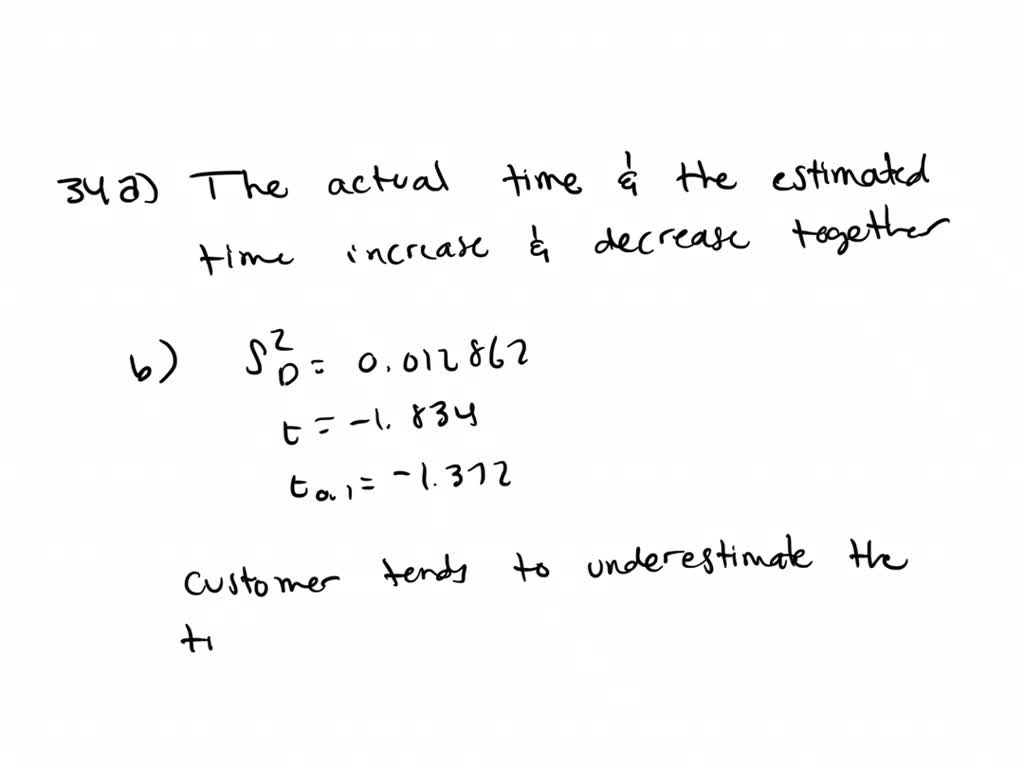 34a) The actual time & the estimated
time increase & decrease together
b) S²_D = 0.012862
t = -1.834
t_0.1 = -1.372
customer tends to underestimate the
ti